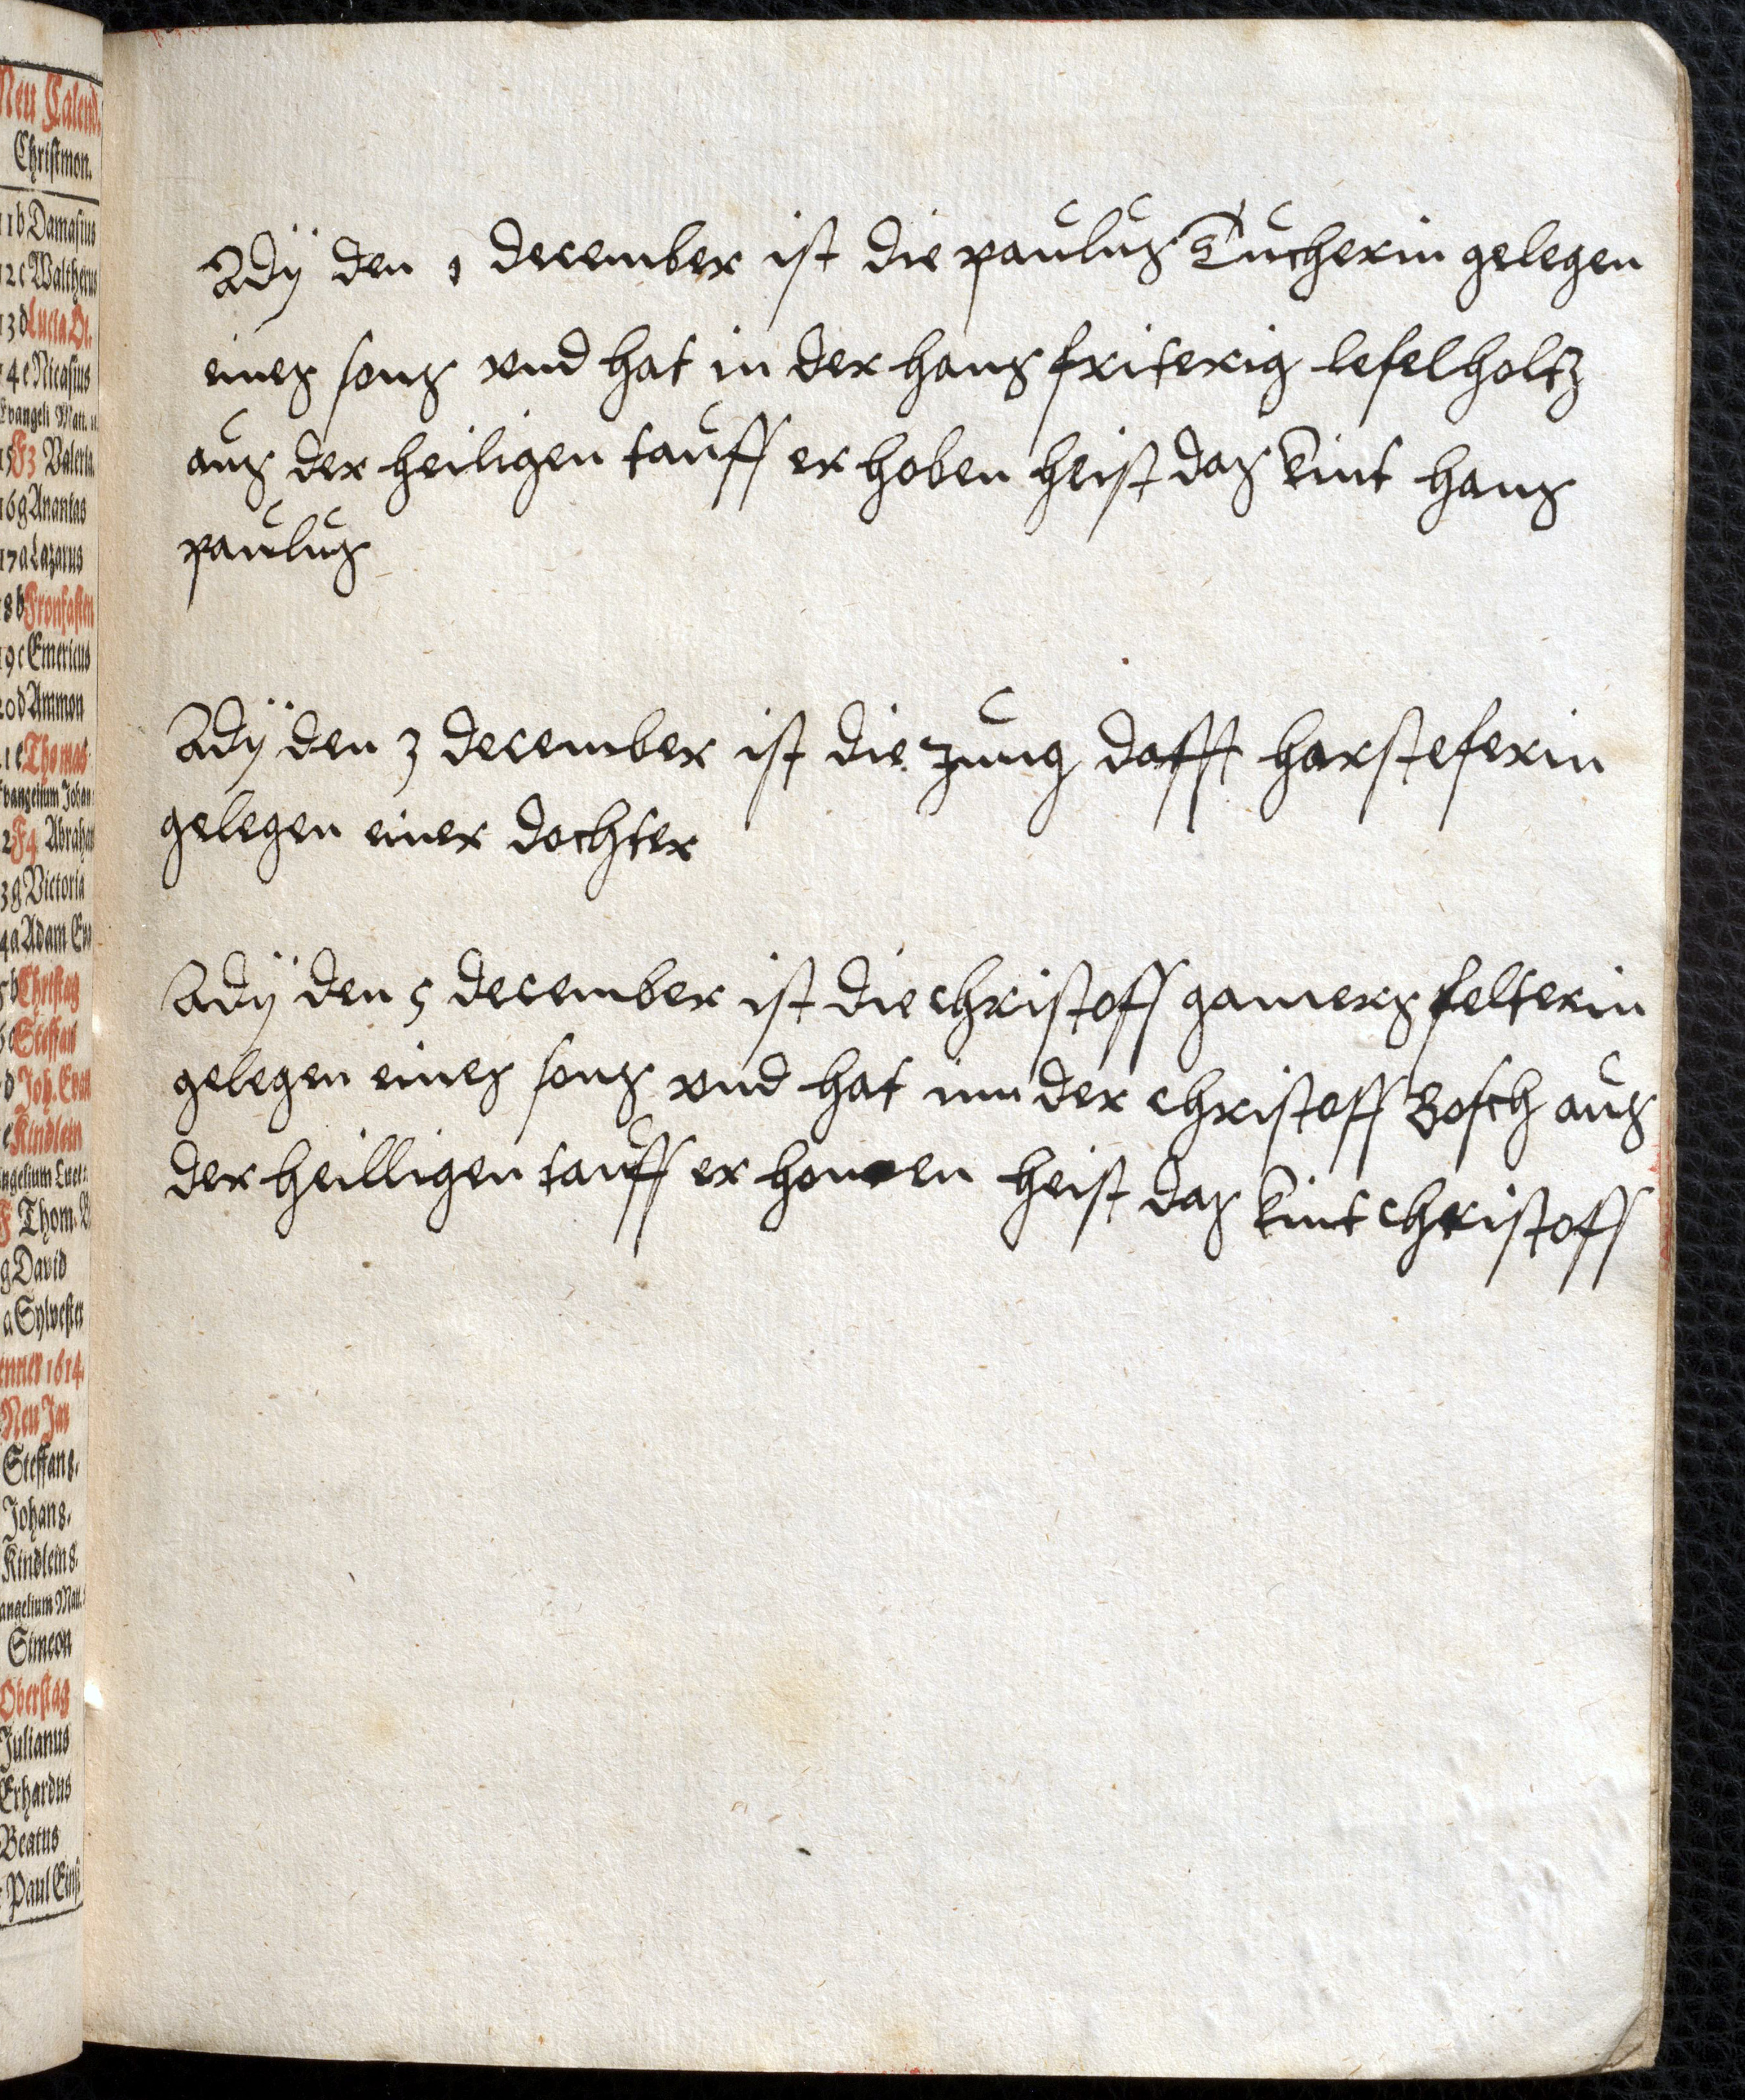 Neu Calend.
Christmon.
11 b Damasius
12 c Waltherus
13 d Lucia Ot.
14 e Nicasius
Evangeli Matt. 11
15 F3 Valeria.
16 g Ananias
17 a Lazarus
18 b Fronfasten
19 c Emericus
20 d Ammon
21 e Thomas
Evangelium Johan
2 F4 Abraham
3 g Victoria
4 a Adam Eva
5 b Christag
6 c Steffan
d Joh. Evan
e Kindlein
angelium Luc. 2
F Thom. B
g David
a Sylvester
enner 1614.
Neu Jar
Steffans.
Johans.
Kindleins.
angelium Mat.
Simeon
Oberstag
Julianus
Erhardus
Beatus
Paul Eins.
Adÿ den 1 december ist die paulus Tucherin gelegen
eines sons vnd hat in der hans friterig lefelholtz
aus der heiligen tauff er hoben heist das kint hans
paulus
Adÿ den 3 december ist die Jung dafft harsteferin
gelegen einer dochter
Adÿ den 5 december ist die christoff gamers felterin
gelegen eines sons vnd hat inn der christoff Bosch aus
der heilligen tauff er honen heist das kint christoff